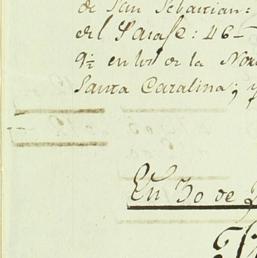 de San Sebastian:
del Parage: 46-
9½ en los de la Nor
Santa Catalina; y
En 30 de